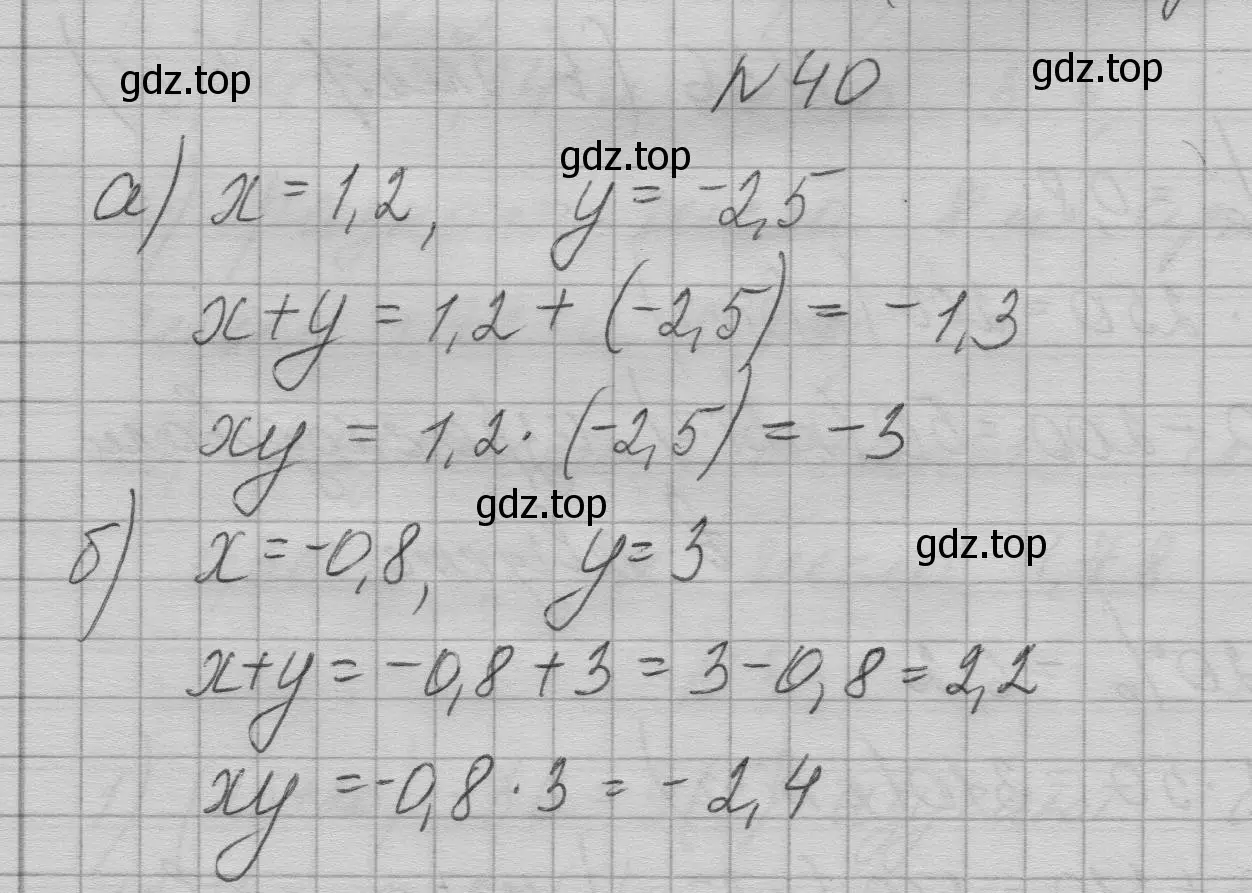 gdz.top
№ 40
gdz.top
gdz.top
а) x = 1,2, y = -2,5
x+y = 1,2 + (-2,5) = -1,3
xy = 1,2 · (-2,5) = -3
gdz.top
б) x = -0,8, y = 3
gdz.top
x+y = -0,8 + 3 = 3 - 0,8 = 2,2
xy = -0,8 · 3 = -2,4